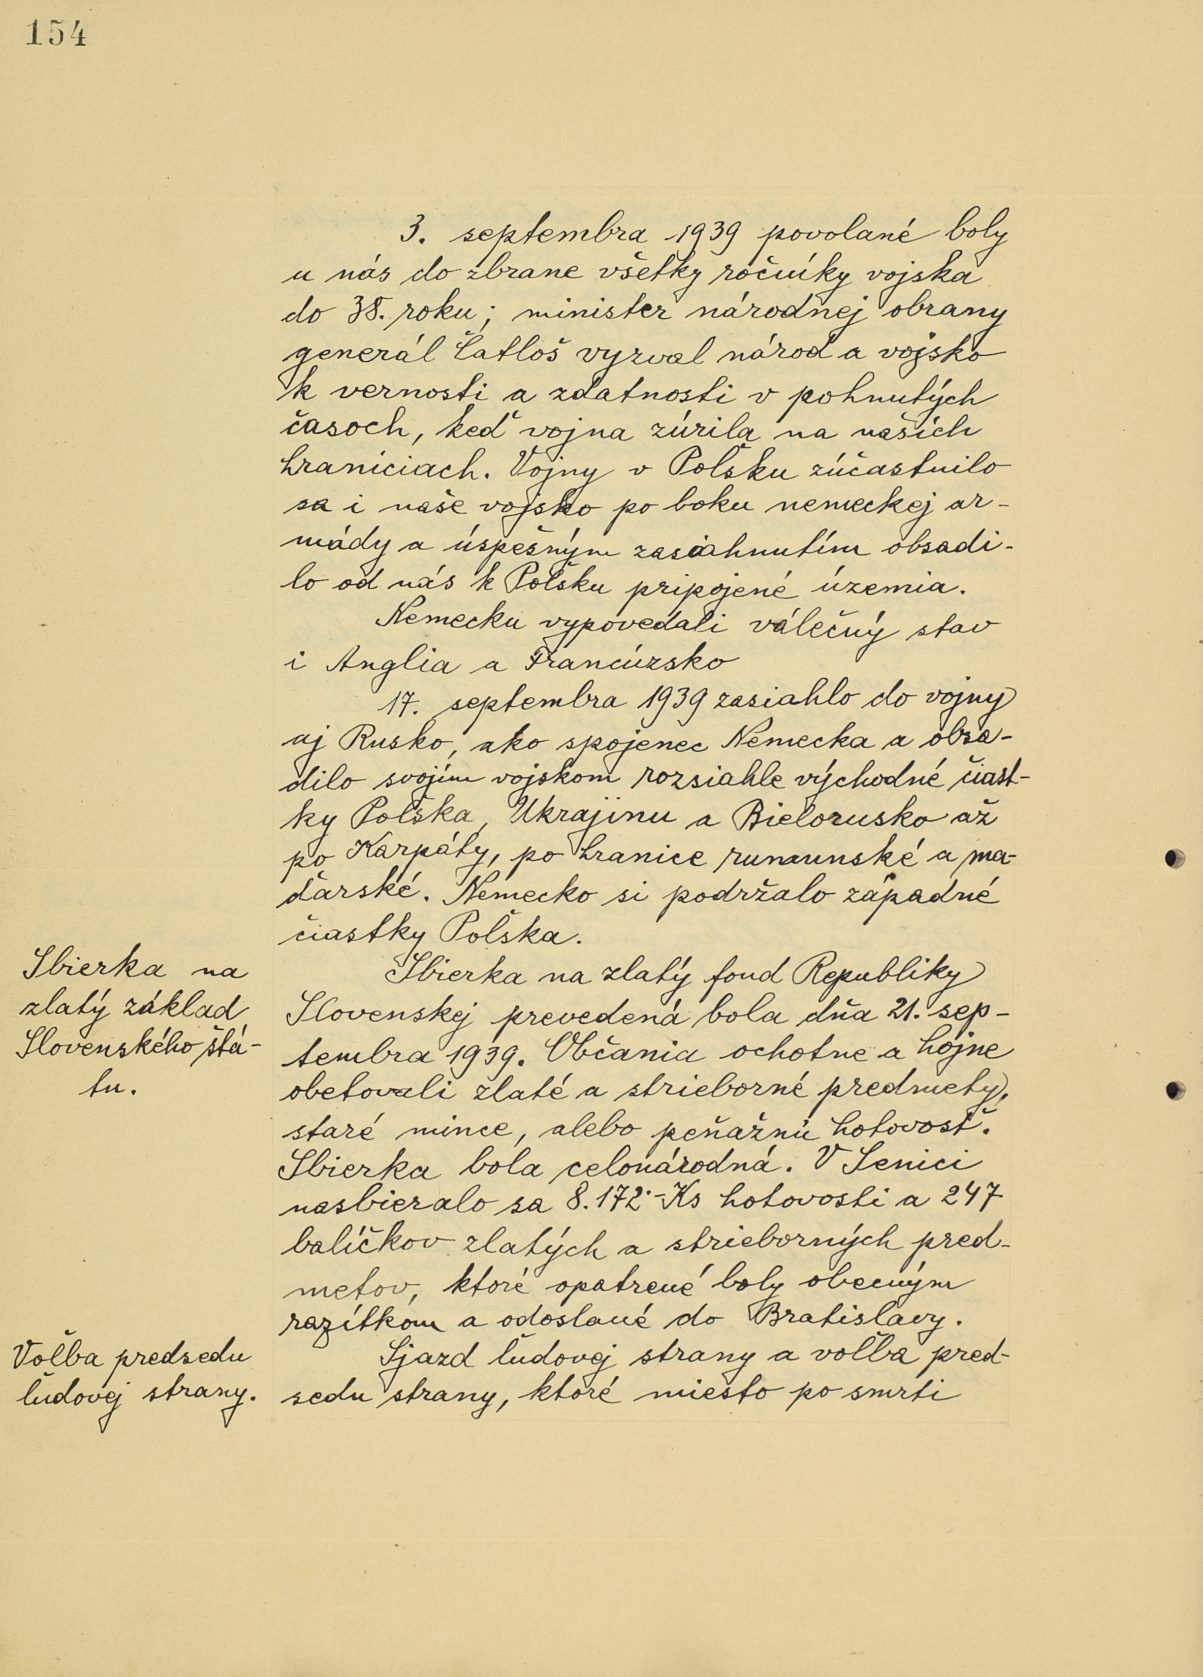 154
3. septembra 1939 povolané boly
u nás do zbrane všetky ročníky vojska
do 38. roku; minister národnej obrany
generál Čatloš vyzval národ a vojsko
k vernosti a zdatnosti v pohnutých
časoch, keď vojna zúrila na našich
hraniciach. Vojny v Poľsku zúčastnilo
sa i naše vojsko po boku nemeckej ar-
mády a úspešným zasiahnutím obsadi-
lo od nás k Poľsku pripojené územia.
Nemecku vypovedali válečný stav
i Anglia a Francúzsko
17. septembra 1939 zasiahlo do vojny
aj Rusko, ako spojenec Nemecka a obsa-
dilo svojím vojskom rozsiahle východné čiast-
ky Poľska, Ukrajinu a Bielorusko až
po Karpáty, po hranice rumunské a ma-
ďarské. Nemecko si podržalo západné
čiastky Poľska.
Sbierka na
zlatý základ
Slovenského štá-
tu.
Sbierka na zlatý fond Republiky
Slovenskej prevedená bola dňa 21. sep-
tembra 1939. Občania ochotne a hojne
obetovali zlaté a strieborné predmety,
staré mince, alebo peňažnú hotovosť.
Sbierka bola celonárodná. V Senici
nasbieralo sa 8.172·-Ks hotovosti a 247
balíčkov zlatých a strieborných pred-
metov, ktoré opatrené boly obecným
razítkom a odoslané do Bratislavy.
Voľba predsedu
ľudovej strany.
Sjazd ľudovej strany a voľba pred-
sedu strany, ktoré miesto po smrti